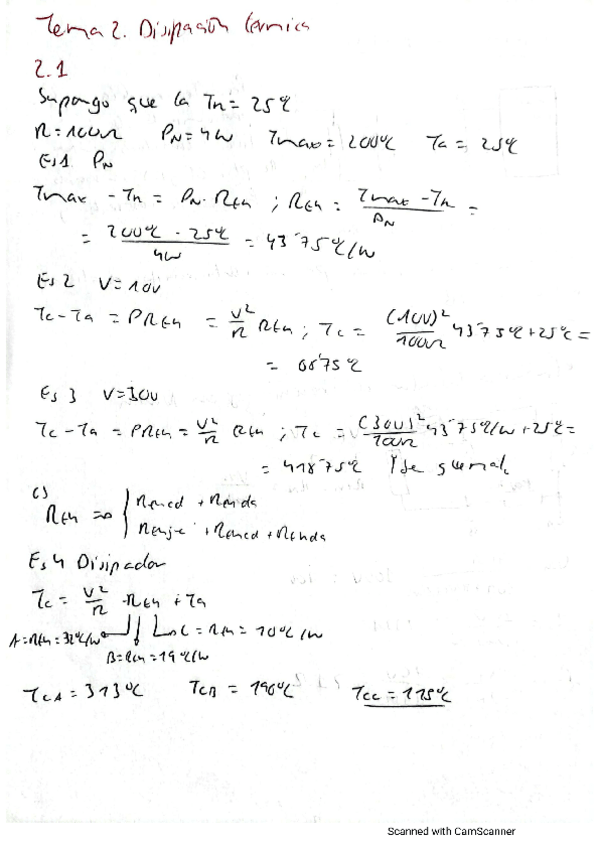 Tema 2. Disipación térmica
2.1
Supongo que la Tn = 25ºC
R = 100Ω PN = 4W Tmax = 200ºC Ta = 25ºC
Es 1 PN
Tmax - Tn = PN · Rth ; Rth = (Tmax - Tn)/PN =
= (200ºC - 25ºC)/4W = 43'75ºC/W
Es 2 V = 10V
Tc - Ta = PRth = V²/R Rth ; Tc = (10V)²/100Ω 43'75ºC + 25ºC =
= 68'75ºC
Es 3 V = 30V
Tc - Ta = PRth = V²/R Rth ; Tc = (30V)²/100Ω 43'75ºC/W + 25ºC =
= 418'75ºC Se quema
C)
Rth => { Rthcd + Rthda
Rthjc + Rthcd + Rthda
Es 4 Disipador
Tc = V²/R · Rth + Ta
A = Rth = 32ºC/W C = Rth = 10ºC/W
B = Rth = 19ºC/W
TcA = 313ºC TcB = 196ºC TcC = 115ºC
Scanned with CamScanner